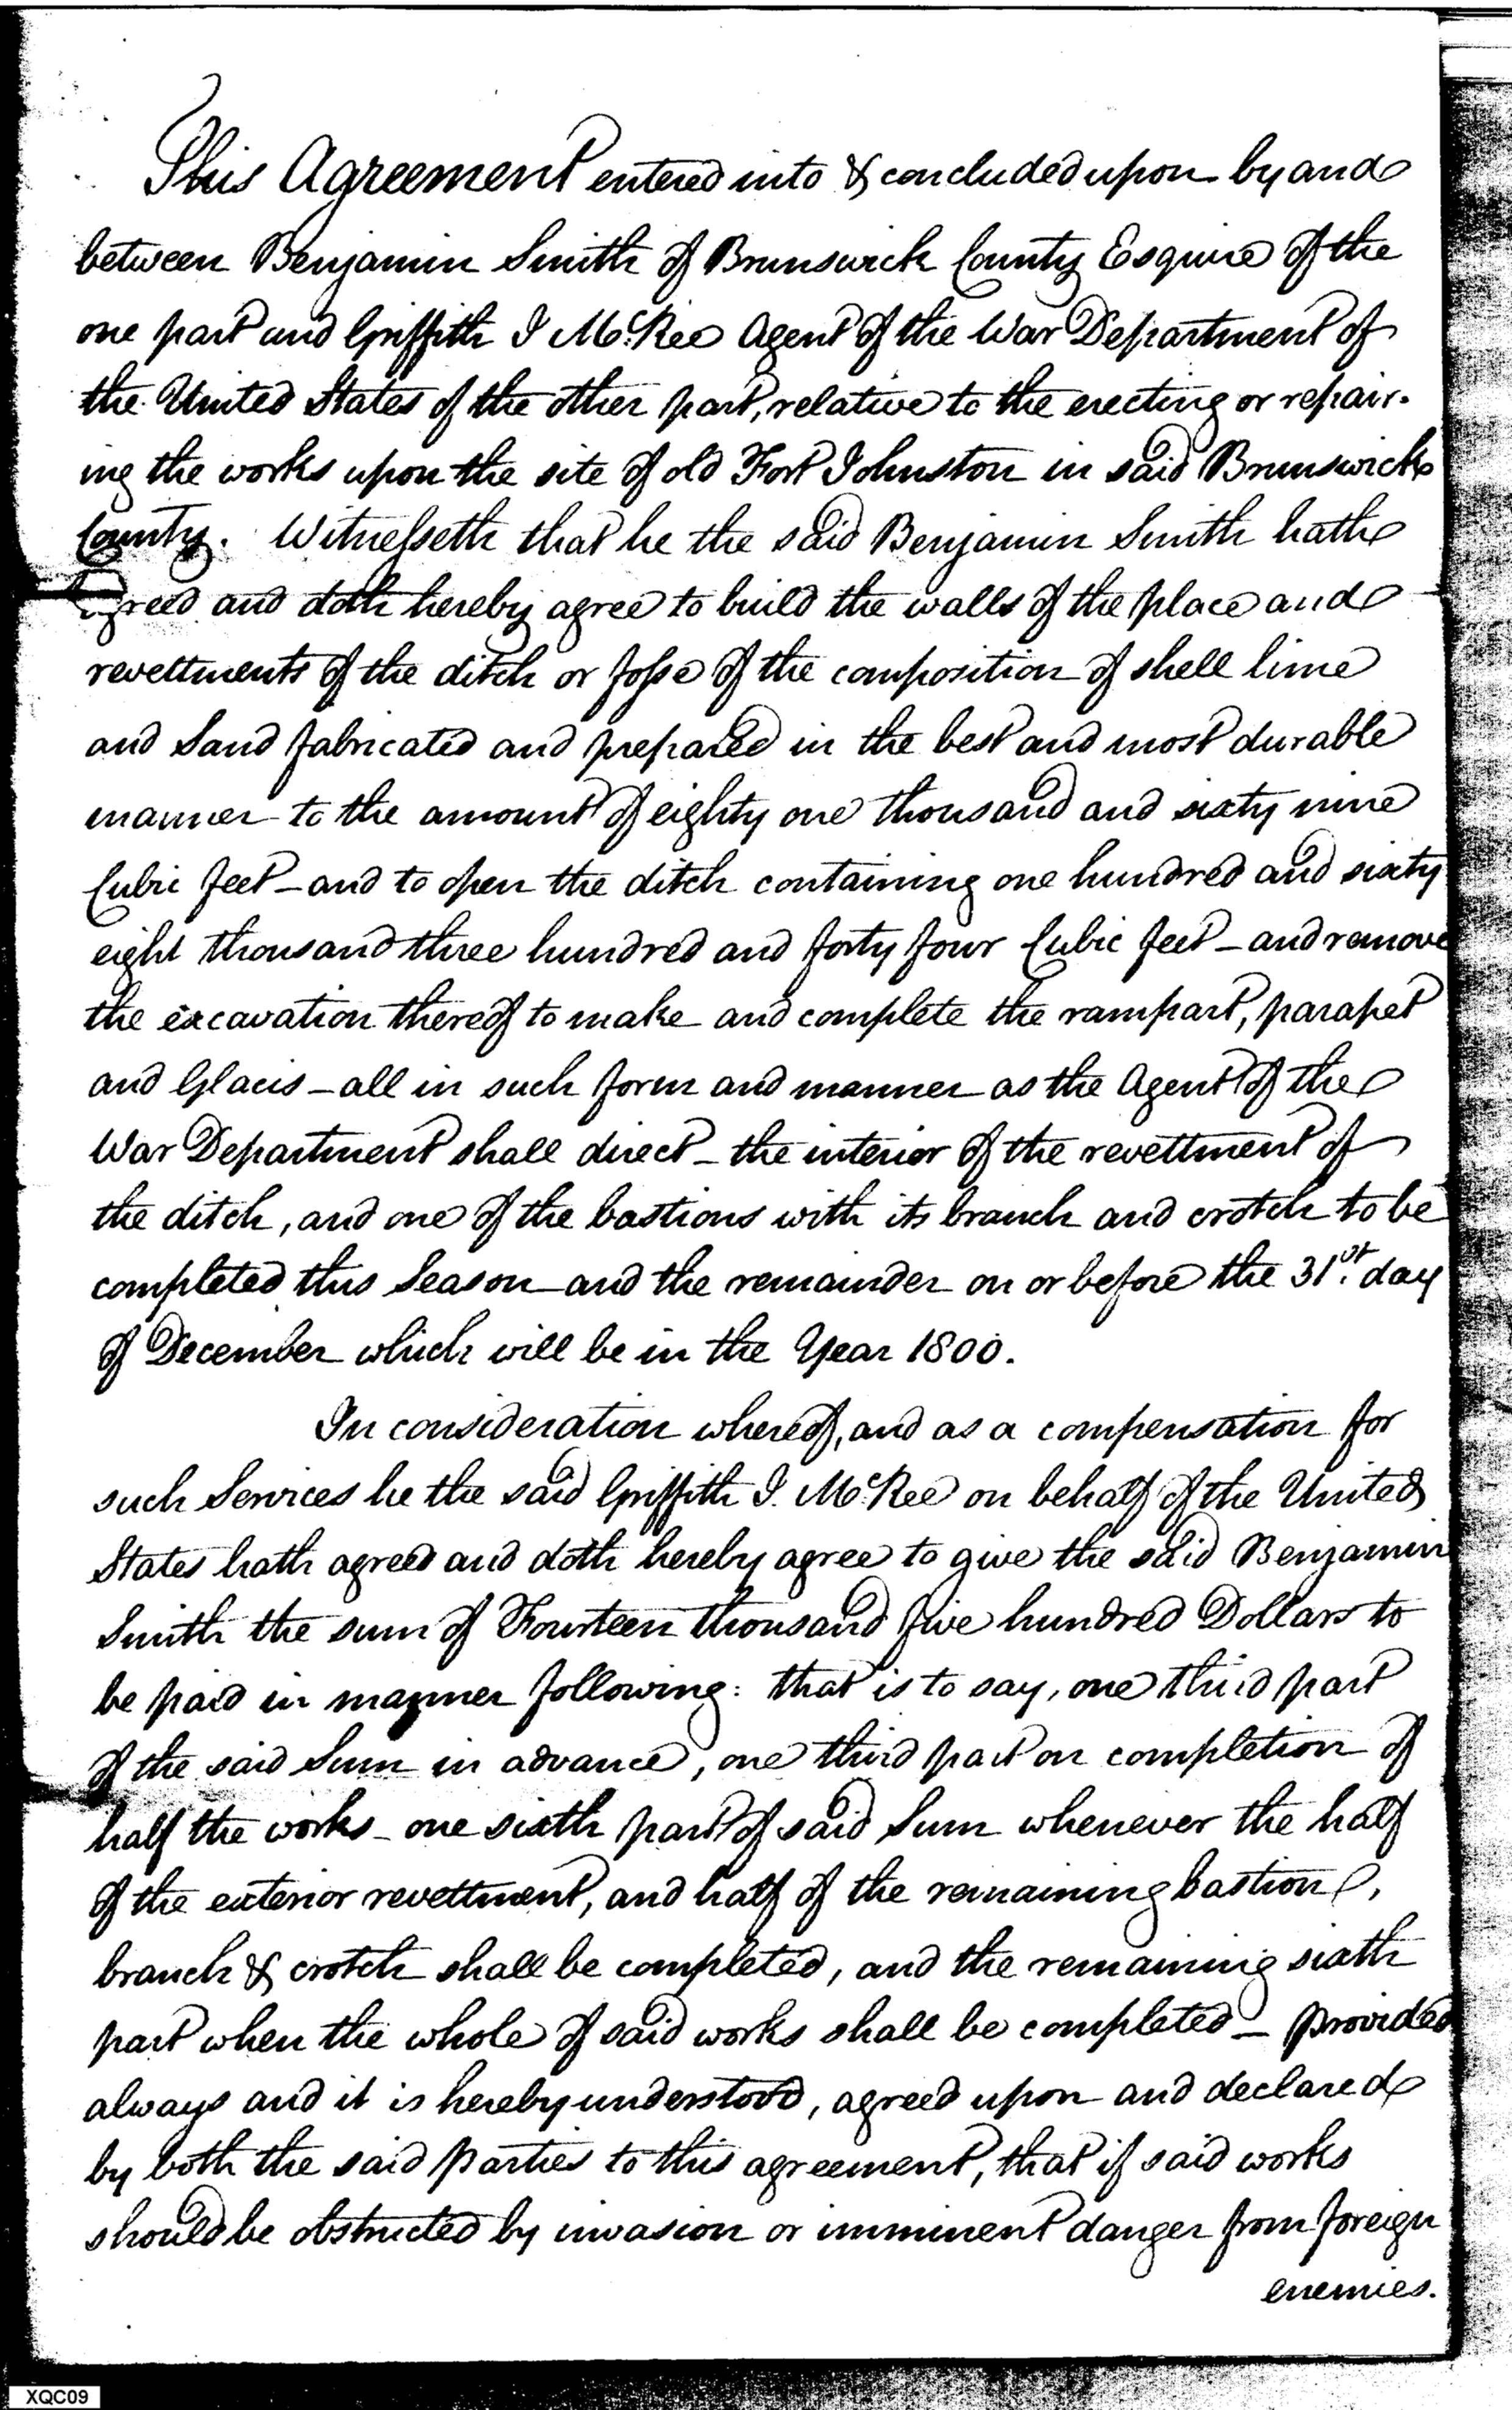 This Agreement entered into & concluded upon by and
between Benjamin Smith of Brunswick County Esquire of the
one part and Griffith I McRee Agent of the War Department of
the United States of the other part, relative to the erecting or repair-
ing the works upon the site of old Fort Johnston in said Brunswick
County. Witnesseth that he the said Benjamin Smith hath
agreed and doth hereby agree to build the walls of the place and
revettments of the ditch or fosse of the composition of shell lime
and Sand fabricated and prepared in the best and most durable
manner to the amount of eighty one thousand and sixty nine
Cubic feet - and to open the ditch containing one hundred and sixty
eight thousand three hundred and forty four Cubic feet - and remove
the excavation thereof to make and complete the rampart, parapet
and Glacis - all in such form and manner as the Agent of the
War Department shall direct - the interior of the revettment of
the ditch, and one of the bastions with its branch and crotch to be
completed this Season and the remainder on or before the 31st. day
of December which will be in the Year 1800.
In consideration whereof, and as a compensation for
such Services he the said Griffith I. McRee on behalf of the United
States hath agreed and doth hereby agree to give the said Benjamin
Smith the sum of Fourteen thousand five hundred Dollars to
be paid in manner following: that is to say, one third part
of the said Sum in advance, one third part on completion of
half the works - one sixth part of said Sum whenever the half
of the exterior revettment, and half of the remaining bastion,
branch & crotch shall be completed, and the remaining sixth
part when the whole of said works shall be completed - provided
always and it is hereby understood, agreed upon and declared
by both the said parties to this agreement, that if said works
should be obstructed by invasion or imminent danger from foreign
enemies.
XQC09